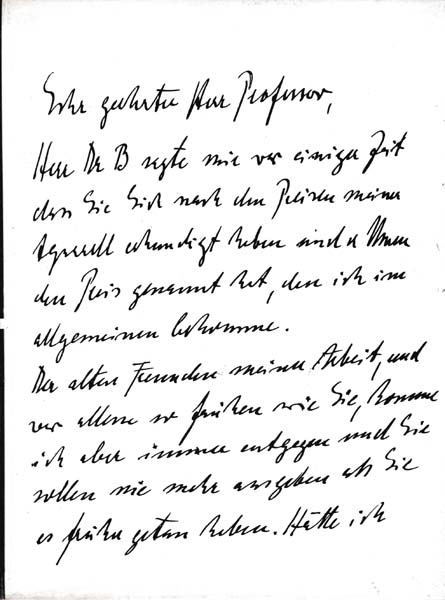 Sehr geehrter Herr Professor,
Herr Dr B sagte mir vor einiger Zeit
dass Sie Sich nach den Preisen meiner
Aquarell erkundigt haben und er Ihnen
den Preis genannt hat, den ich im
allgemeinen bekomme.
Den alten Freunden meiner Arbeit, und
vor allem so frühen wie Sie, komme
ich aber immer entgegen und Sie
sollen nie mehr ausgeben als Sie
es früher getan haben. Hätte ich